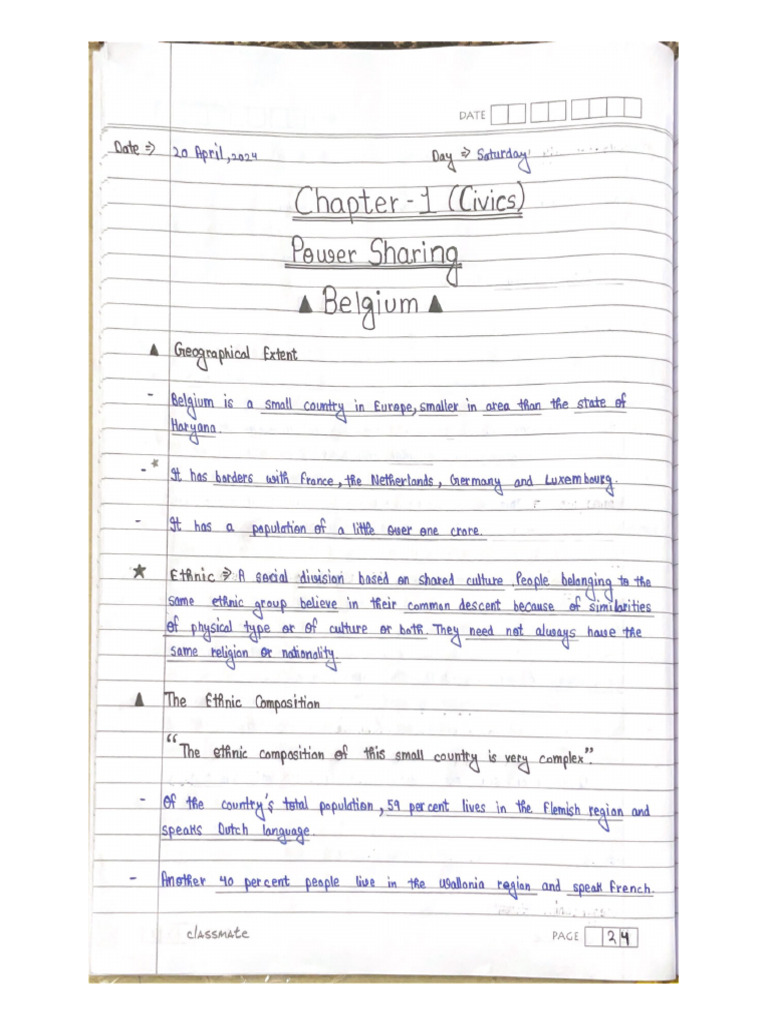 DATE
Date ⇒ 20 April, 2024 Day ⇒ Saturday
Chapter - 1 (Civics)
Power Sharing
▲ Belgium ▲
▲ Geographical Extent
- Belgium is a small country in Europe, smaller in area than the state of
Haryana.
-* It has borders with France, the Netherlands, Germany and Luxembourg.
- It has a population of a little over one crore.
★ Ethnic ⇒ A social division based on shared culture People belonging to the
same ethnic group believe in their common descent because of similarities
of physical type or of culture or both. They need not always have the
same religion or nationality.
▲ The Ethnic Composition
"The ethnic composition of this small country is very complex".
- Of the country's total population, 59 per cent lives in the Flemish region and
speaks Dutch language.
- Another 40 per cent people live in the Wallonia region and speak French.
classmate PAGE 24